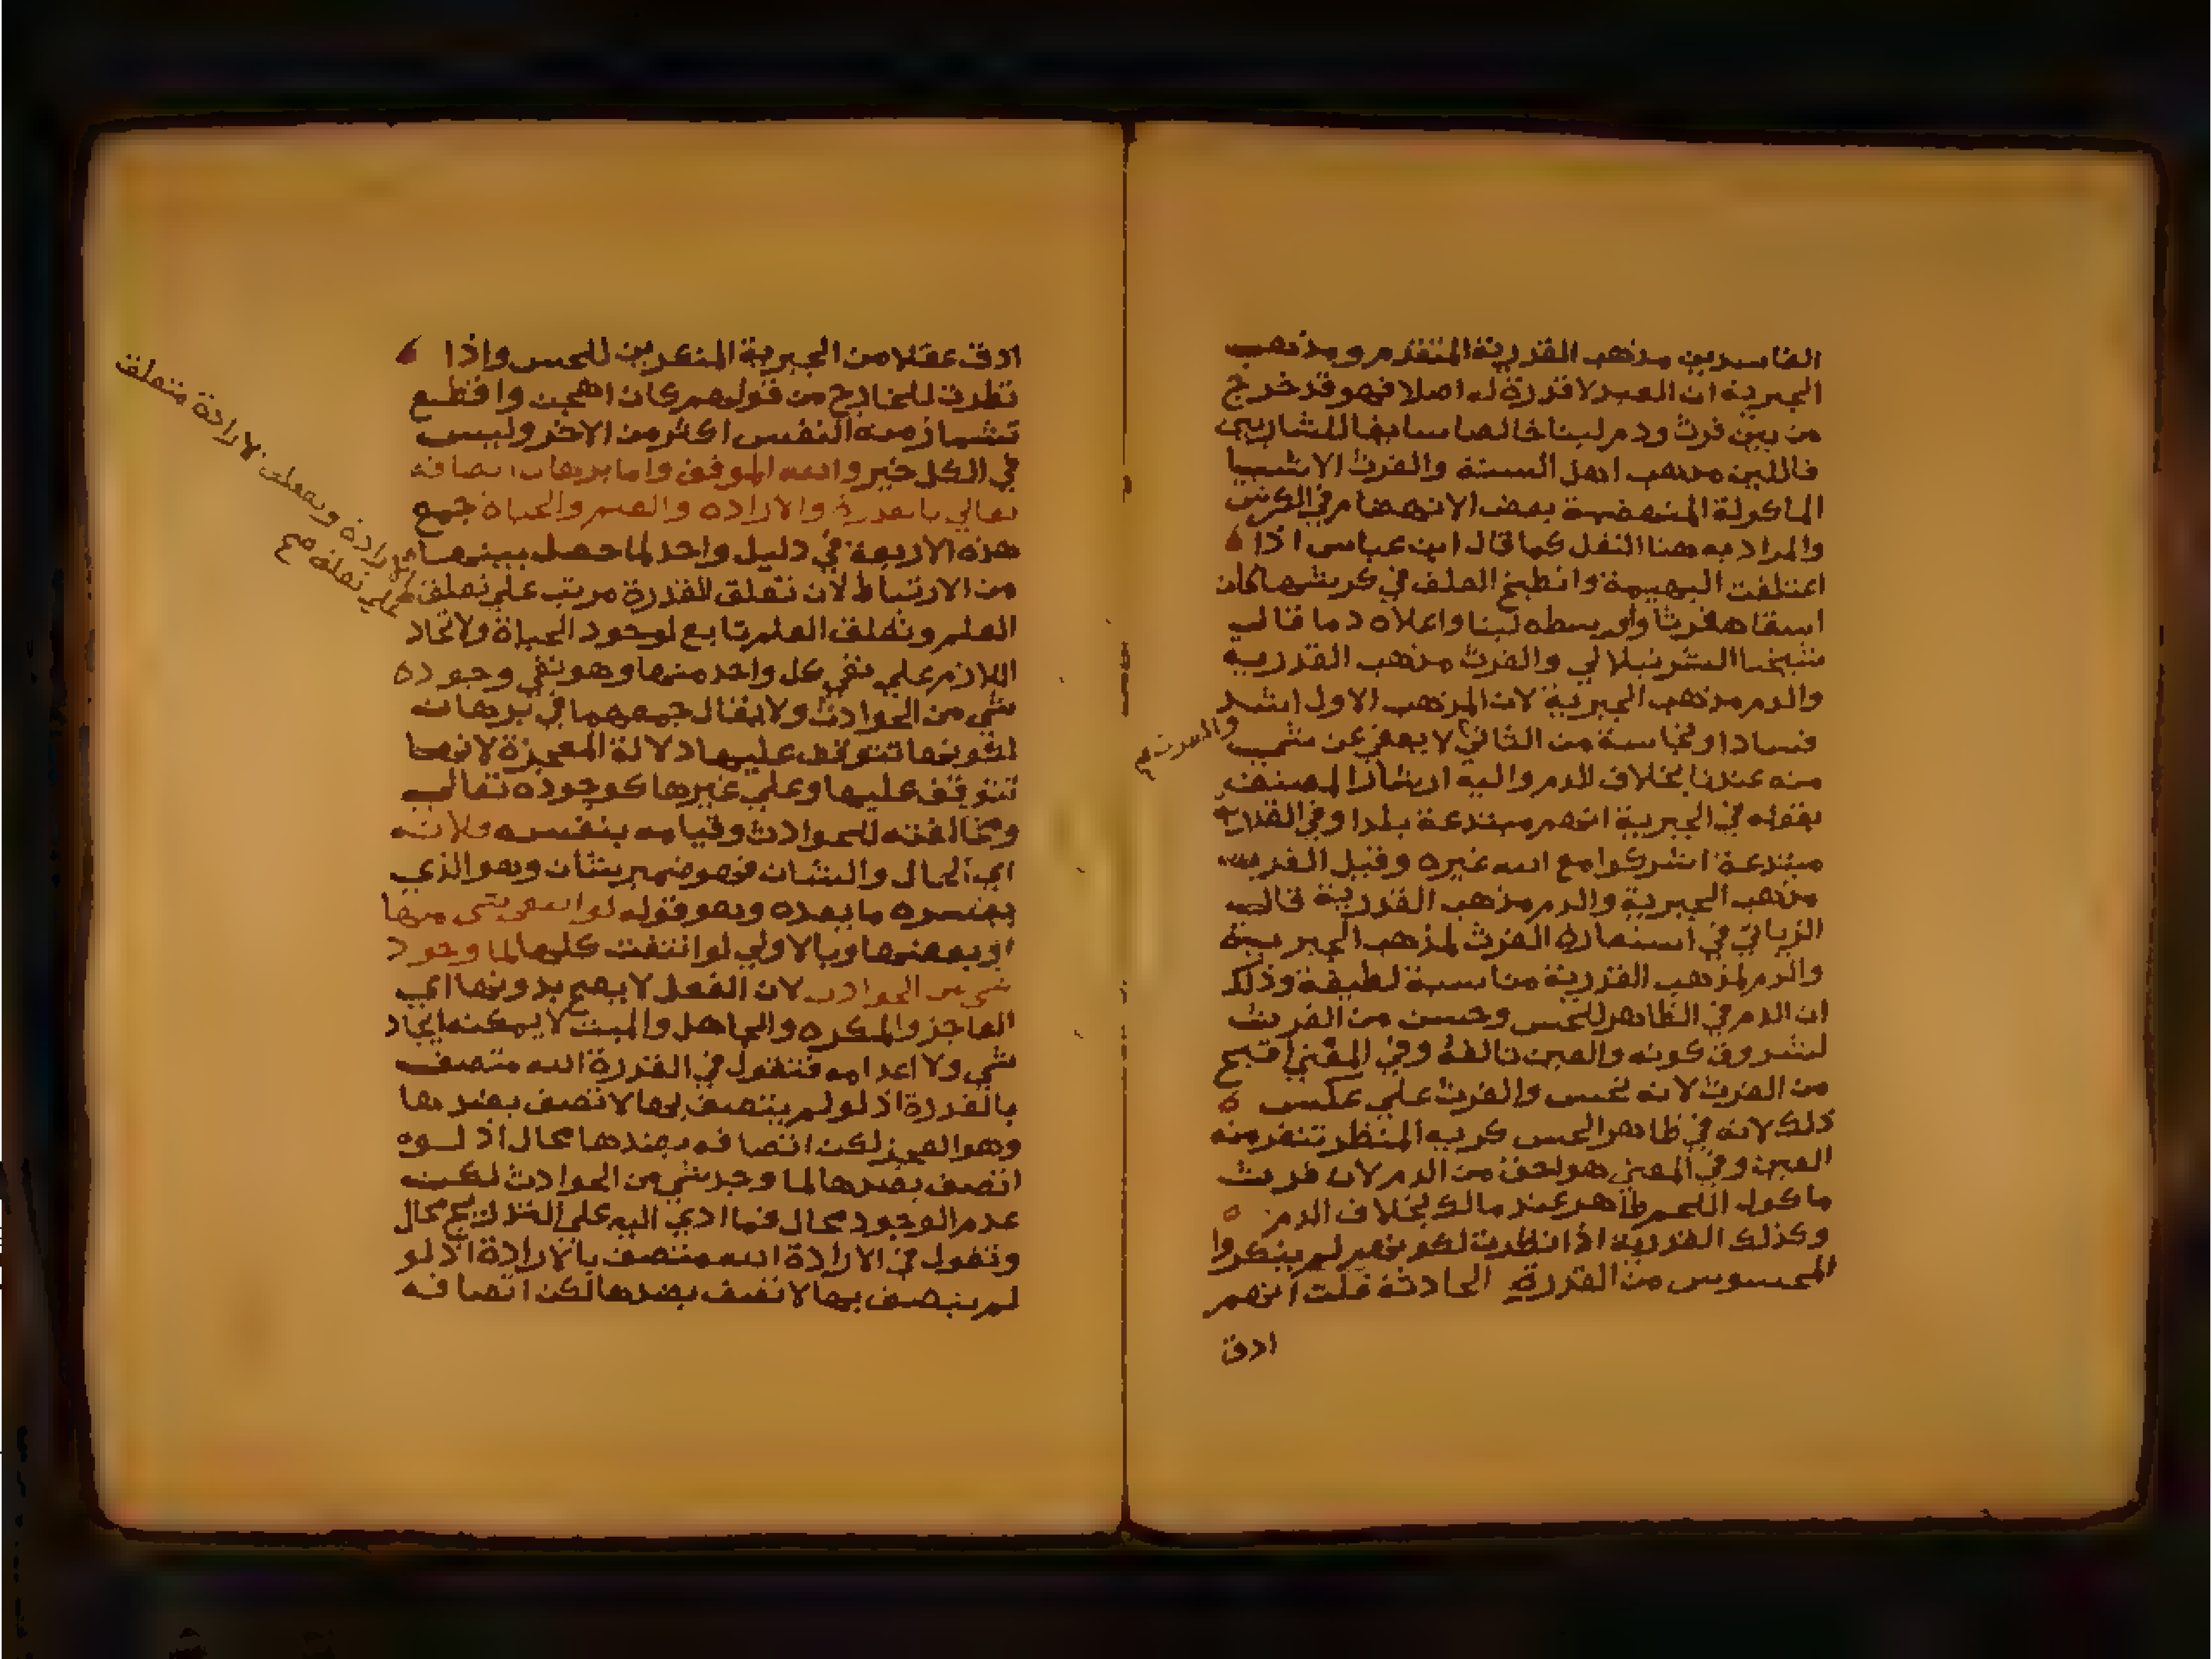 الفاسدين مذهب القدرية المتقدم ومذهب
الجبرية ان العبد لا قدرة له اصلا فهو قد خرج
من بين فرث ودم لبنا خالصا سايغا للشاربين
فاللبن مذهب اهل السنة والفرث الاشيا
الماكولة المنهضمة بعض الانهضام في الكرش
والمراد به هنا الثفل كما قال ابن عباس اذا
اعتلفت البهيمة وانطبخ العلف في كرشها كان
اسفله فرثا واوسطه لبنا واعلاه دما قال
شيخنا الشرنبلالي والفرث مذهب القدرية
والدم مذهب الجبرية لان المذهب الاول اشد
فسادا ونجاسة من الثاني لا يعفي عن شي
منه عندنا بخلاف الدم واليه اشار المصنف
بقوله في الجبرية انهم مبتدعة بلدا وفي القدرية
مبتدعة اشركوا مع الله غيره وقيل الفرث
مذهب الجبرية والدم مذهب القدرية قال
الزياتي في استعارة الفرث لمذهب الجبرية
والدم لمذهب القدرية مناسبة لطيفة وذلك
ان الدم في الظاهر للحس وحسن من الفرث
لشروق كونه والعين تالفه وفي المعني اقبح
من الفرث لانه نجس والفرث علي عكس
ذلك لانه في ظاهر الحس كريه المنظر تنفر منه
العين وفي المعني هو اخف من الدم لان فرث
ماكول اللحم طاهر عند مالك بخلاف الدم
وكذلك القدرية اذا نظرت لكونهم لم ينكروا
المحسوس من القدرة الحادثة قلت انهم
ادق
ادق عقلا من الجبرية المنكرين للحس واذا
نظرت للخارج من قولهم كان اهجن واقطع
تشماز منه النفس اكثر من الاخر وليس
في الكل خير والله الموفق واما برهان اتصافه
تعالي بالقدرة والارادة والعلم والحياة جمع
هذه الاربعة في دليل واحد لما حصل بينهما
من الارتباط لان تعلق القدرة مرتب علي تعلق
الارادة وتعلق الارادة متعلق
علي تعلقه صح
العلم وتعلق العلم تابع لوجود الحياة ولاتحاد
اللازم علي نفي كل واحد منها وهو نفي وجوده
شي من الحوادث ولا يقال جمعهما في برهانه
لكونها تتوقف عليها دلالة المعجزة لانها
تتوقف عليها وعلي غيرها كوجوده تعالي
ومخالفته للحوادث وقيامه بنفسه فلانه
اي الحال والشان فهو ضمير شان وهو الذي
يفسره ما بعده وهو قوله لو انتفي شي منها
او بعضها وبالاولي لو انتفت كلها لما وجد
شي من الحوادث لان الفعل لا يصح بدونها اي
العاجز والمكره والجاهل والميت لا يمكنه ايجاد
شي ولا اعدامه فتقول في القدرة الله متصف
بالقدرة اذ لو لم يتصف بها لاتصف بضدها
وهو العجز لكن اتصافه بضدها محال اذ لو
اتصف بضدها لما وجد شي من الحوادث لكنه
عدم الوجود محال فما ادي اليه علي التدريج محال
وتقول في الارادة الله متصف بالارادة اذ لو
لم يتصف بها لاتصف بضدها لكن اتصافه